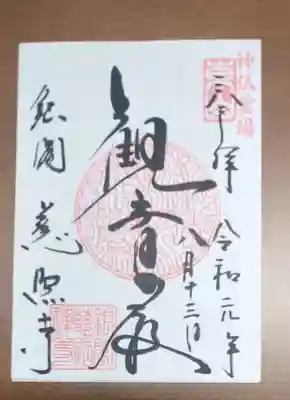 奉拝 令和元年
八月十三日
観音殿
銀閣 慈照寺